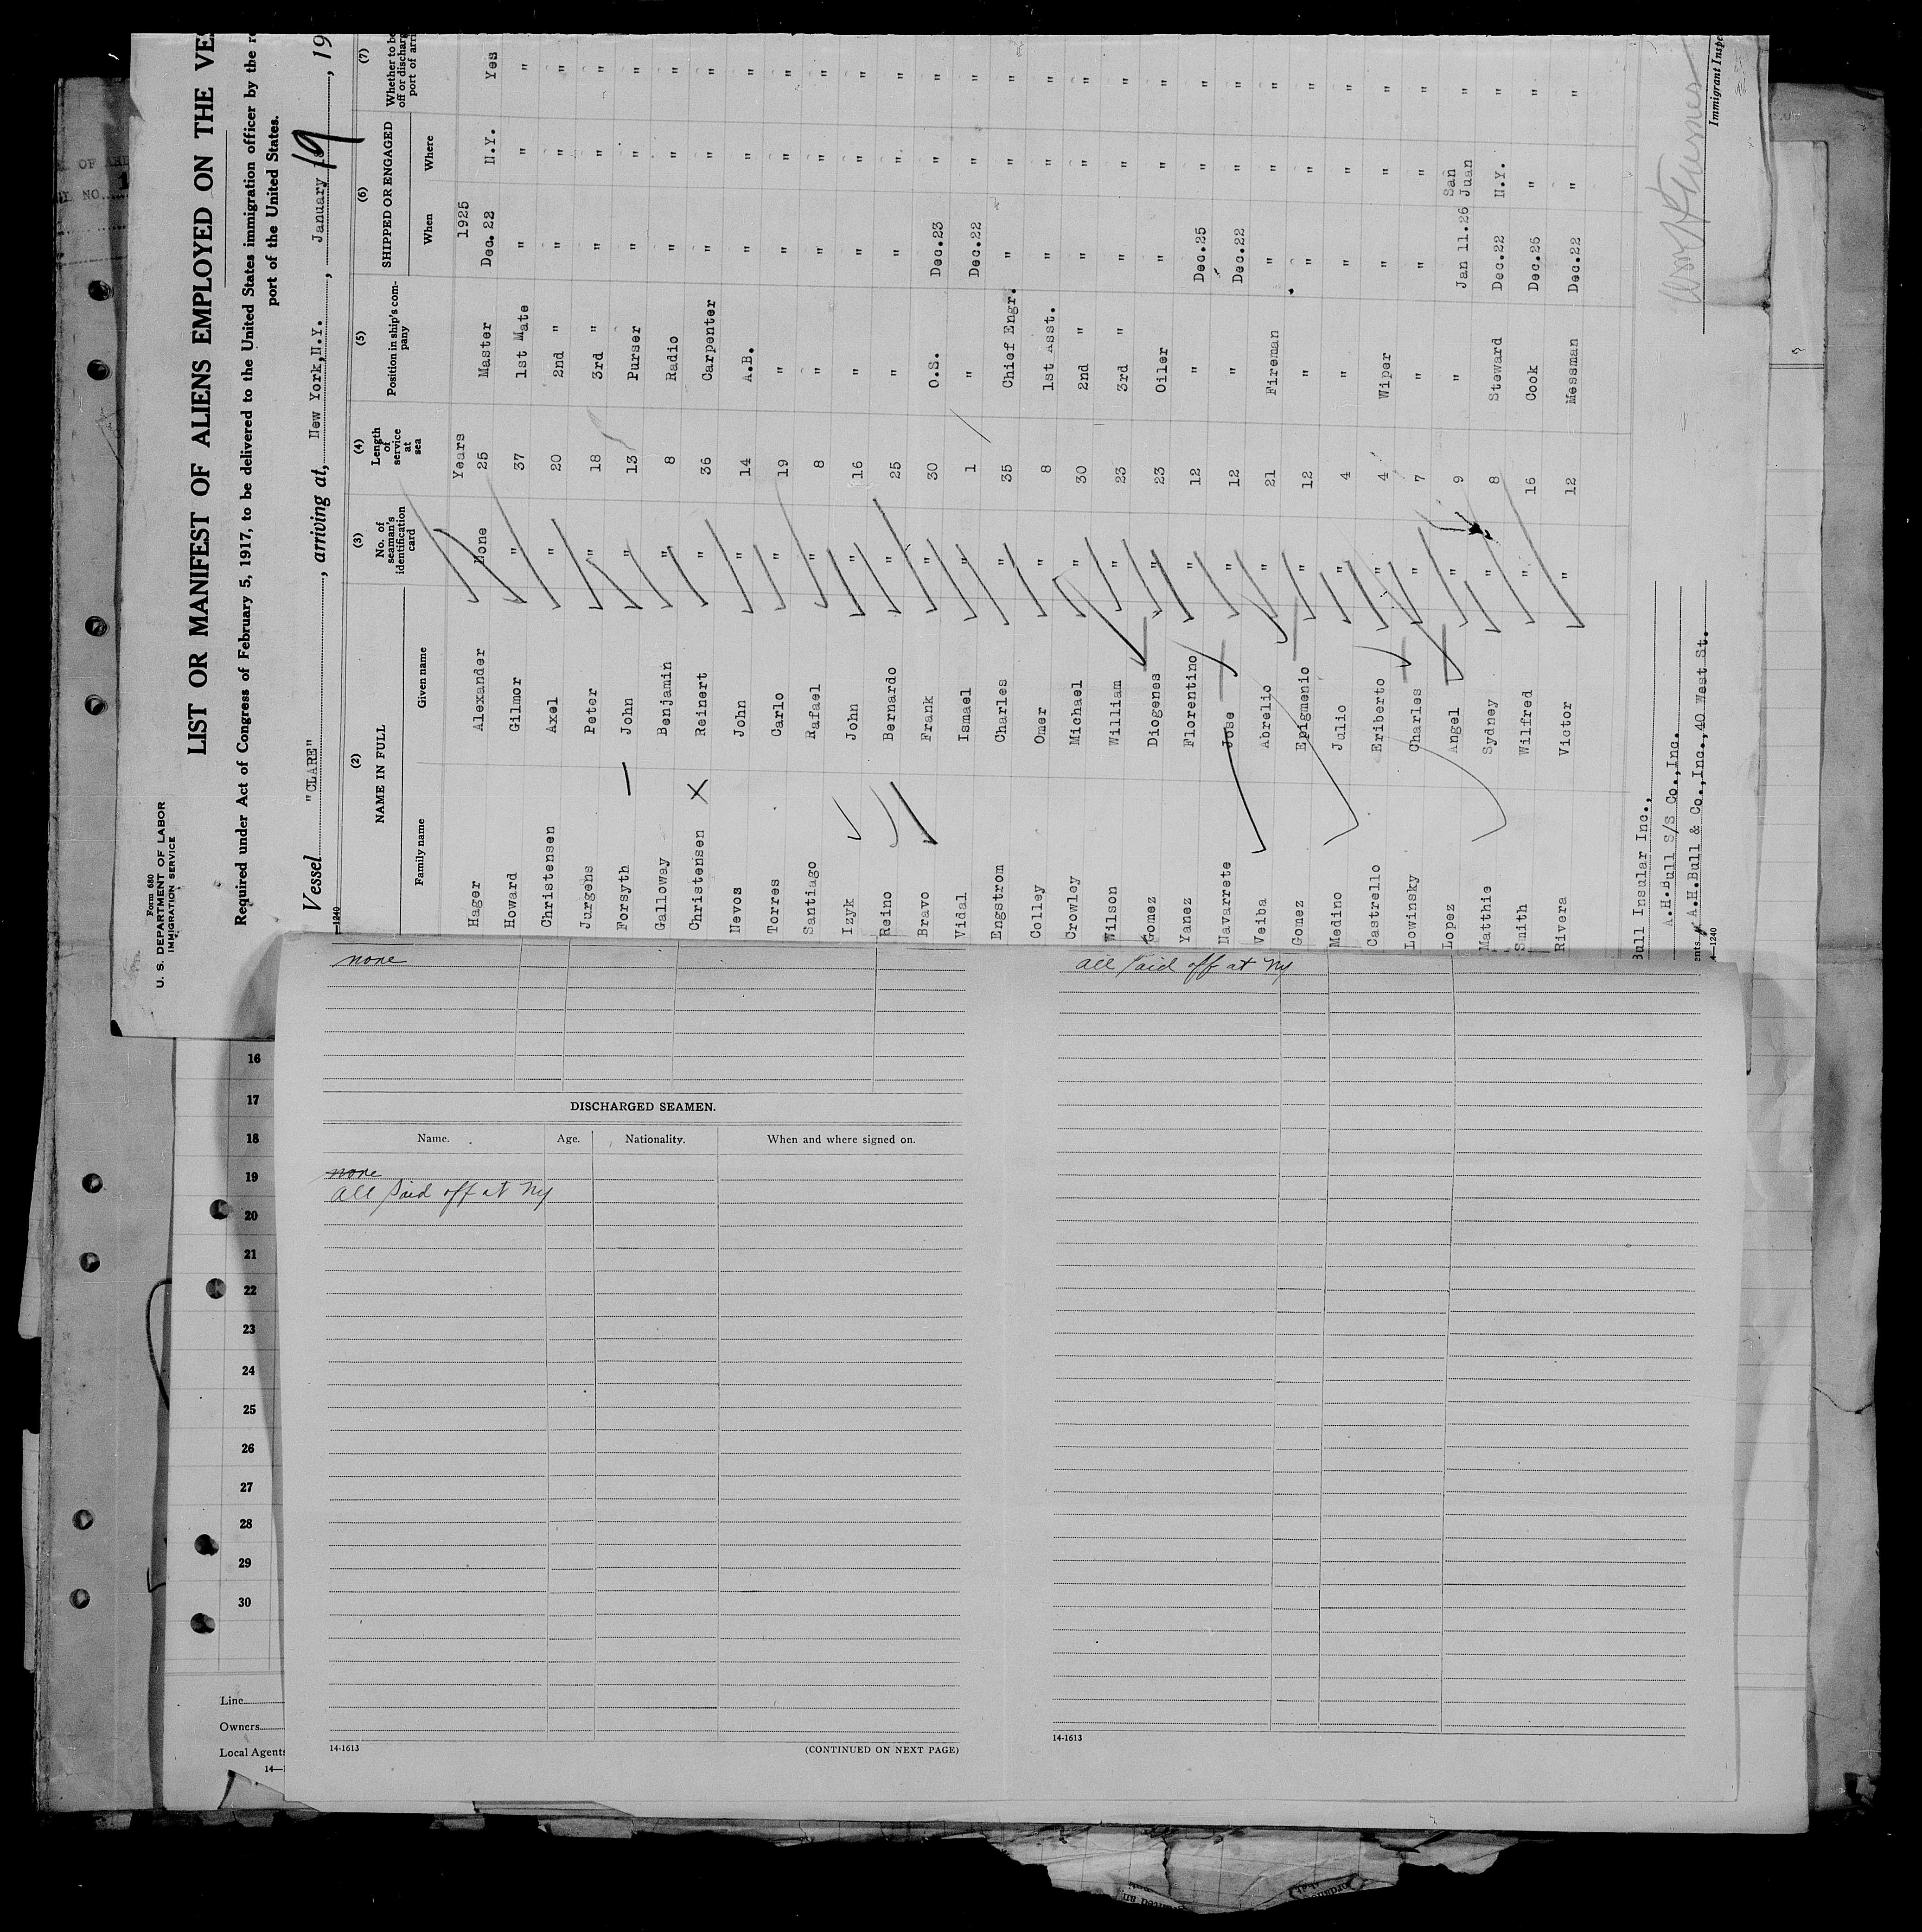 Form 680
U. S. DEPARTMENT OF LABOR
IMMIGRATION SERVICE
LIST OR MANIFEST OF ALIENS EMPLOYED ON THE VES
Required under Act of Congress of February 5, 1917, to be delivered to the United States immigration officer by the re
port of the United States.
Vessel "CLARE", arriving at, New York,N.Y., January 19, 19
14—1240
(2) (3) (4) (5) (6) (7)
NAME IN FULL No. of seaman's identification card Length of service at sea Position in ship's company SHIPPED OR ENGAGED Whether to be off or discharg port of arri
Family name Given name When Where
Years 1925
Hager Alexander None 25 Master Dec.22 N.Y. Yes
Howard Gilmor " 37 1st Mate " " "
Christensen Axel " 20 2nd " " " "
Jurgens Peter " 18 3rd " " " "
Forsyth John " 13 Purser " " "
Galloway Benjamin " 8 Radio " " "
Christensen Reinert " 36 Carpenter " " "
Nevos John " 14 A.B. " " "
Torres Carlo " 19 " " " "
Santiago Rafael " 8 " " " "
Izyk John " 16 " " " "
Reino Bernardo " 25 " " " "
Bravo Frank " 30 O.S. Dec.23 " "
Vidal Ismael " 1 " Dec.22 " "
Engstrom Charles " 35 Chief Engr. " " "
Colley Omer " 8 1st Asst. " " "
Crowley Michael " 30 2nd " " " "
Wilson William " 23 3rd " " " "
Gomez Diogenes " 23 Oiler " " "
Yanez Florentino " 12 " Dec.25 " "
Navarrete Jose " 12 " Dec.22 " "
Veiba Abrelio " 21 Fireman " " "
Gomez Epigmenio " 12 " " " "
Medino Julio " 4 " " " "
Castrello Eriberto " 4 Wiper " " "
Lowinsky Charles " 7 " " " "
Lopez Angel " 9 " Jan 11.26 San Juan "
Matthie Sydney " 8 Steward Dec.22 N.Y. "
Smith Wilfred " 16 Cook Dec.26 " "
Rivera Victor " 12 Messman Dec.22 " "
Bull Insular Inc.,
A.H.Bull S/S Co.,Inc.
ents. A.H.Bull & Co.,Inc.,40 West St.
4—1240
Immigrant Inspe
none
DISCHARGED SEAMEN.
Name. Age. Nationality. When and where signed on.
none
all paid off at NY
14-1613 (CONTINUED ON NEXT PAGE)
all paid off at NY
14-1613
16
17
18
19
20
21
22
23
24
25
26
27
28
29
30
Line
Owners
Local Agents
14—1